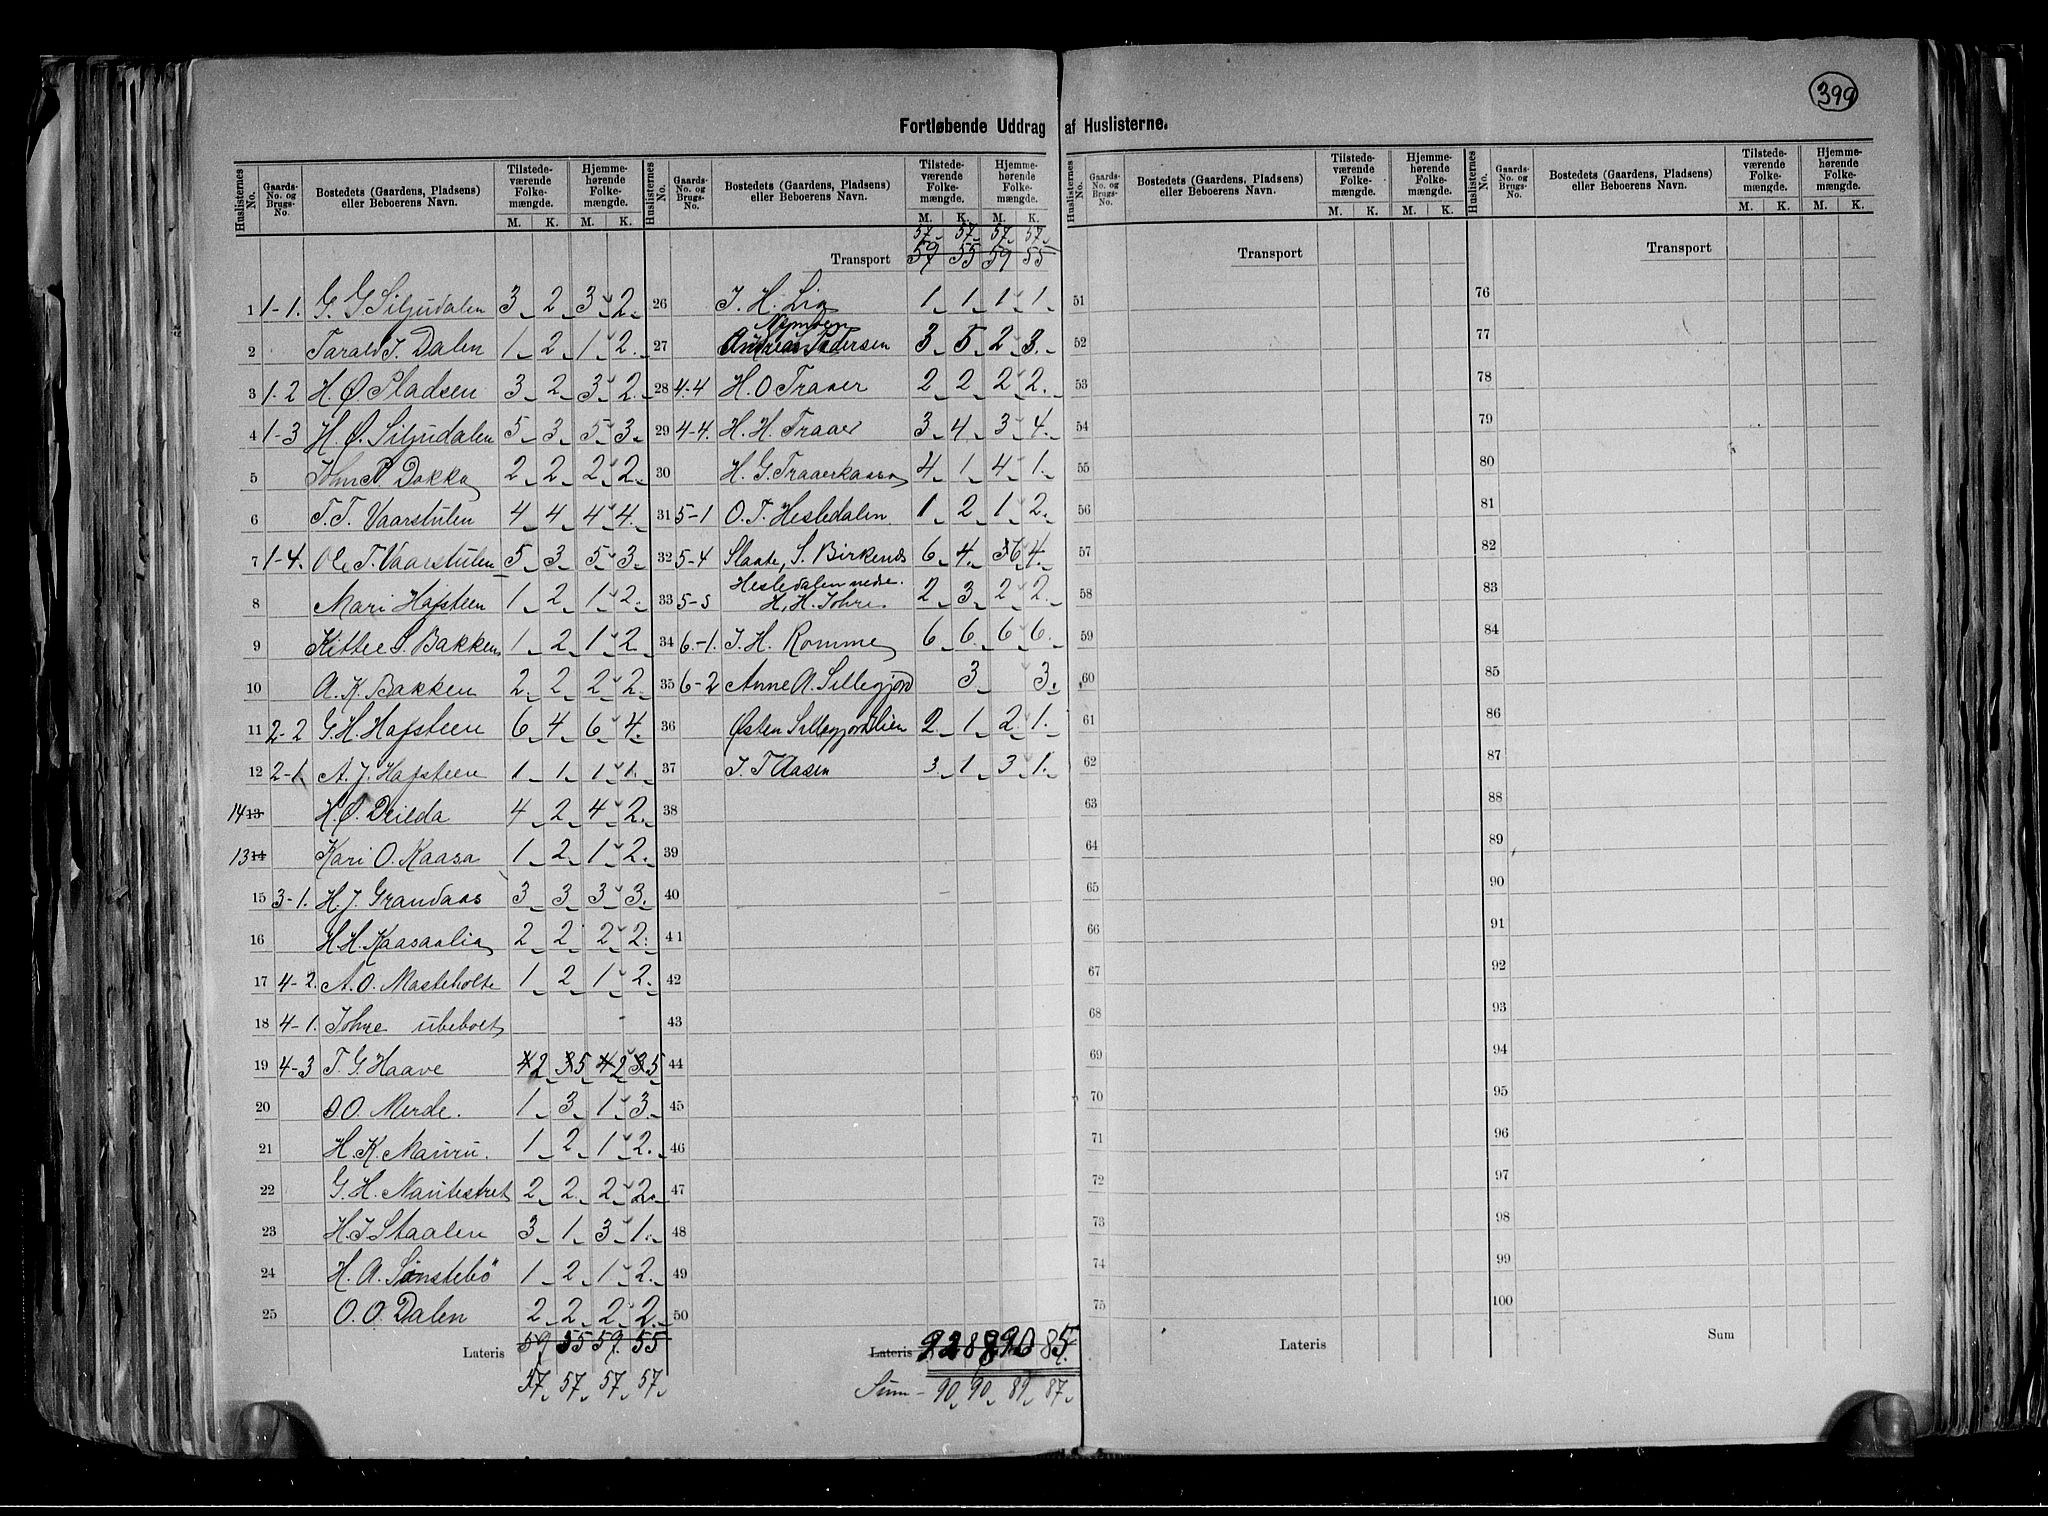 399
Fortløbende Uddrag af Huslisterne.
Huslisternes No. Gaards-No. og Brugs-No. Bostedets (Gaardens, Pladsens) eller Beboerens Navn. Tilstedeværende Folkemængde. M. K. Hjemmehørende Folkemængde. M. K.
1 1-1. G. G. Siljudalen 3 2 3 2
2 Tarald J. Dalen 1 2 1 2
3 1-2 H. Ø. Pladsen 3 2 3 2
4 1-3 H. Ø. Siljudalen 5 3 5 3
5 John P. Dokka 2 2 2 2
6 T. T. Vaarstulen 4 4 4 4
7 1-4. Ole T. Vaarstulen 5 3 5 3
8 Mari Hafsteen 1 2 1 2
9 Kittel S. Bakken 1 2 1 2
10 A. K. Bakken 2 2 2 2
11 2-2 G. H. Hafsteen 6 4 6 4
12 2-1. A. J. Hafsteen 1 1 1 1
14 13 H. Ø. Deilda 4 2 4 2
13 14 Kari O. Kaasa 1 2 1 2
15 3-1. H. J. Grandaas 3 3 3 3
16 H. H. Kaasaalia 2 2 2 2
17 4-2. A. O. Masteholte 1 2 1 2
18 4-1. Johre ubeboet
19 4-3 T. G. Haave 4 2 3 5 4 2 3 5
20 O. Merde. 1 3 1 3
21 H. K. 1 2 1 2
22 G. H. 2 2 2 2
23 H. J. Staalen 3 1 3 1
24 H. A. Sønstebö 1 2 1 2
25 O. O. Dalen 2 2 2 2
Lateris 59 55 59 55
57 57 57 57
Huslisternes No. Gaards-No. og Brugs-No. Bostedets (Gaardens, Pladsens) eller Beboerens Navn. Tilstedeværende Folkemængde. M. K. Hjemmehørende Folkemængde. M. K.
57 57 57 57
Transport 59 55 59 55
26 J. H. Lia 1 1 1 1
27 Andreas Pedersen 3 5 2 3
28 4-4 H. O. Traaer 2 2 2 2
29 4-4. H. H. Traaer 3 4 3 4
30 H. G. Traaerkaasa 4 1 4 1
31 5-1 O. T. Hesledalen 1 2 1 2
32 5-4 Slaate, S. Birkenes 6 4 6 4
Hesledalen nedre.
33 5-5 H. H. Johre 2 3 2 2
34 6-1. J. H. Romme 6 6 6 6
35 6-2 Anne A. Sillegjord 3 3
36 Østen Sillegjordlien 2 1 2 1
37 J. T. Aasen 3 1 3 1
38
39
40
41
42
43
44
45
46
47
48
49
50
Lateris
Sum 90 90 89 87
Huslisternes No. Gaards-No. og Brugs-No. Bostedets (Gaardens, Pladsens) eller Beboerens Navn. Tilstedeværende Folkemængde. M. K. Hjemmehørende Folkemængde. M. K.
Transport
51
52
53
54
55
56
57
58
59
60
61
62
63
64
65
66
67
68
69
70
71
72
73
74
75
Lateris
Huslisternes No. Gaards-No. og Brugs-No. Bostedets (Gaardens, Pladsens) eller Beboerens Navn. Tilstedeværende Folkemængde. M. K. Hjemmehørende Folkemængde. M. K.
Transport
76
77
78
79
80
81
82
83
84
85
86
87
88
89
90
91
92
93
94
95
96
97
98
99
100
Sum